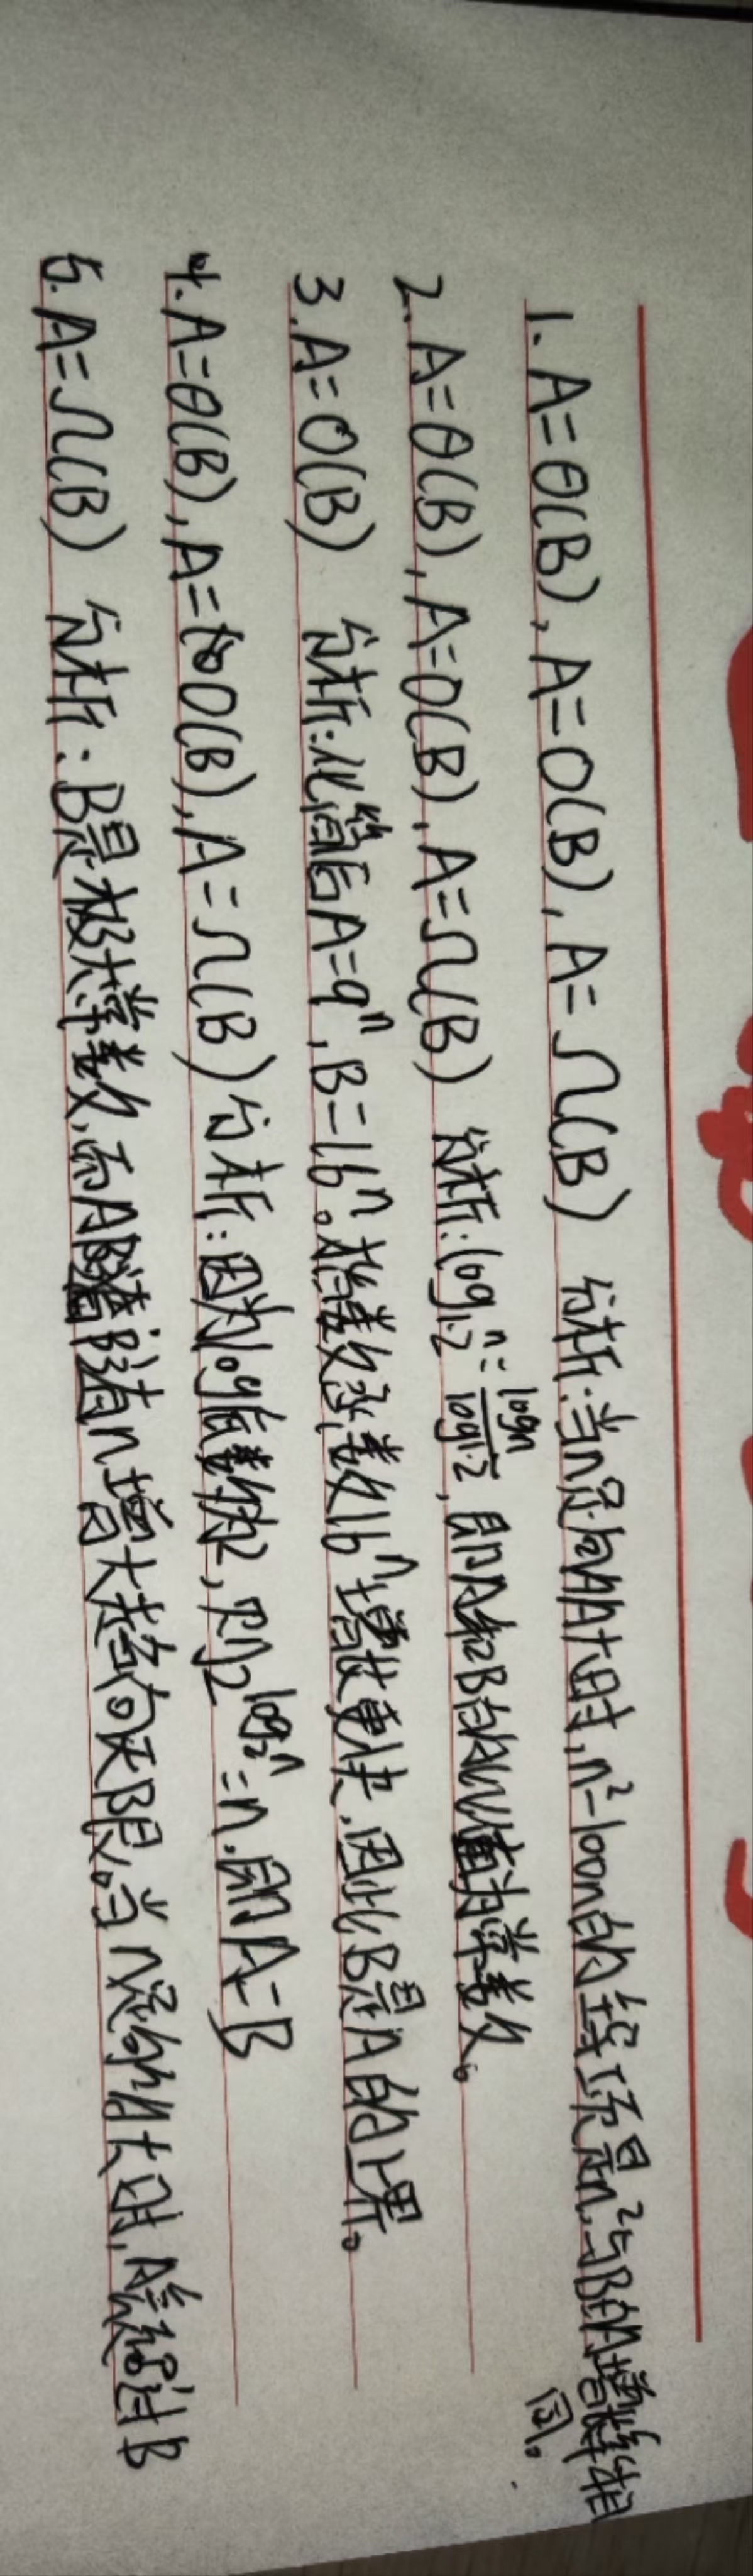 1. A=θ(B), A=O(B), A=Ω(B) 分析:当n足够大时,n²-100n的主导项是n²,与B的增长率相同。
2. A=θ(B), A=O(B), A=Ω(B) 分析:log₁.₂ⁿ=logn/log1.2,即A和B的比值为常数。
3. A=O(B) 分析:化简后A=9ⁿ,B=16ⁿ。指数函数16ⁿ增长更快,因此B是A的上界。
4. A=θ(B), A=O(B), A=Ω(B) 分析:因为log底数为2,则2^log₂ⁿ=n,即A=B
5. A=Ω(B) 分析:B是极大常数,而A随着n增大趋向无限。当n足够大时,A会超过B